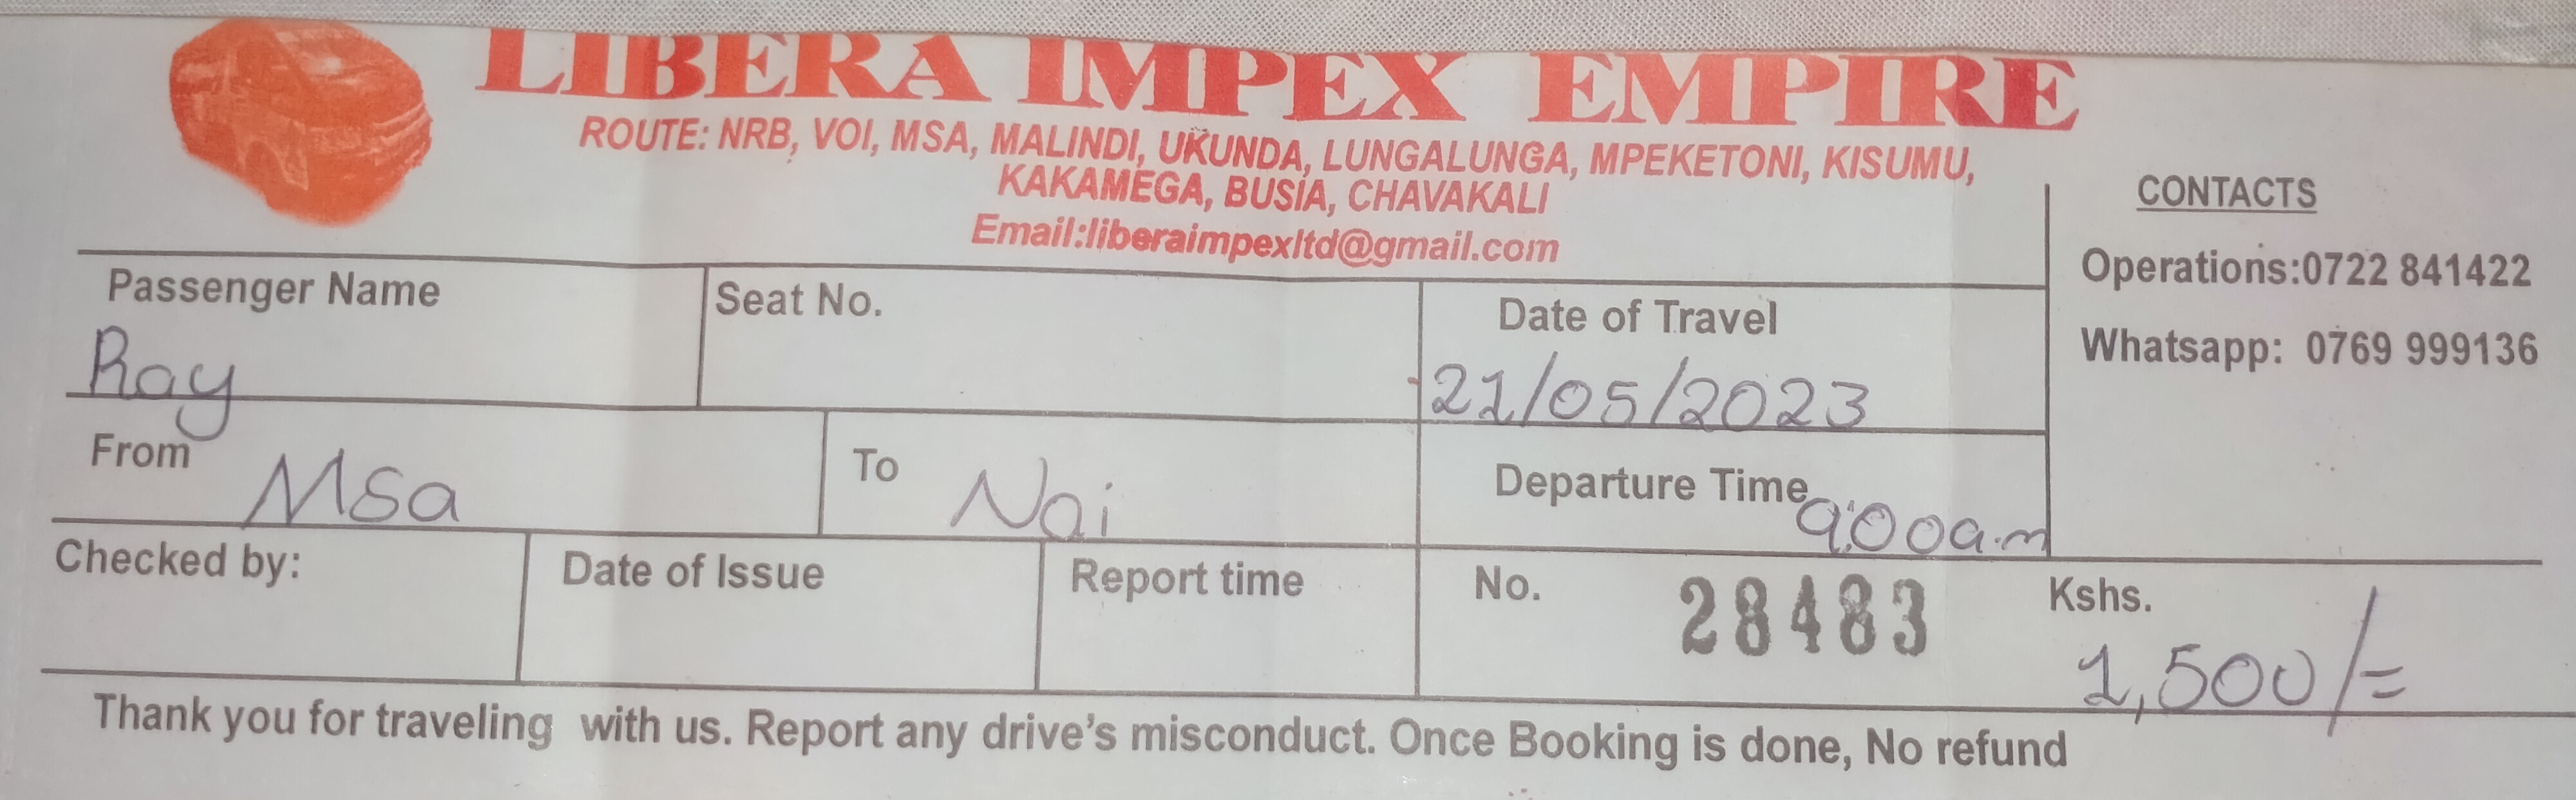 LIBERA IMPEX EMPIRE
ROUTE: NRB, VOI, MSA, MALINDI, UKUNDA, LUNGALUNGA, MPEKETONI, KISUMU,
KAKAMEGA, BUSIA, CHAVAKALI
Email:liberaimpexltd@gmail.com
CONTACTS
Operations:0722 841422
Whatsapp: 0769 999136
Passenger Name
Ray
Seat No.
Date of Travel
21/05/2023
From
Msa
To
Nai
Departure Time
9:00a.m
Checked by:
Date of Issue
Report time
No.
28483
Kshs.
1,500/=
Thank you for traveling with us. Report any drive's misconduct. Once Booking is done, No refund